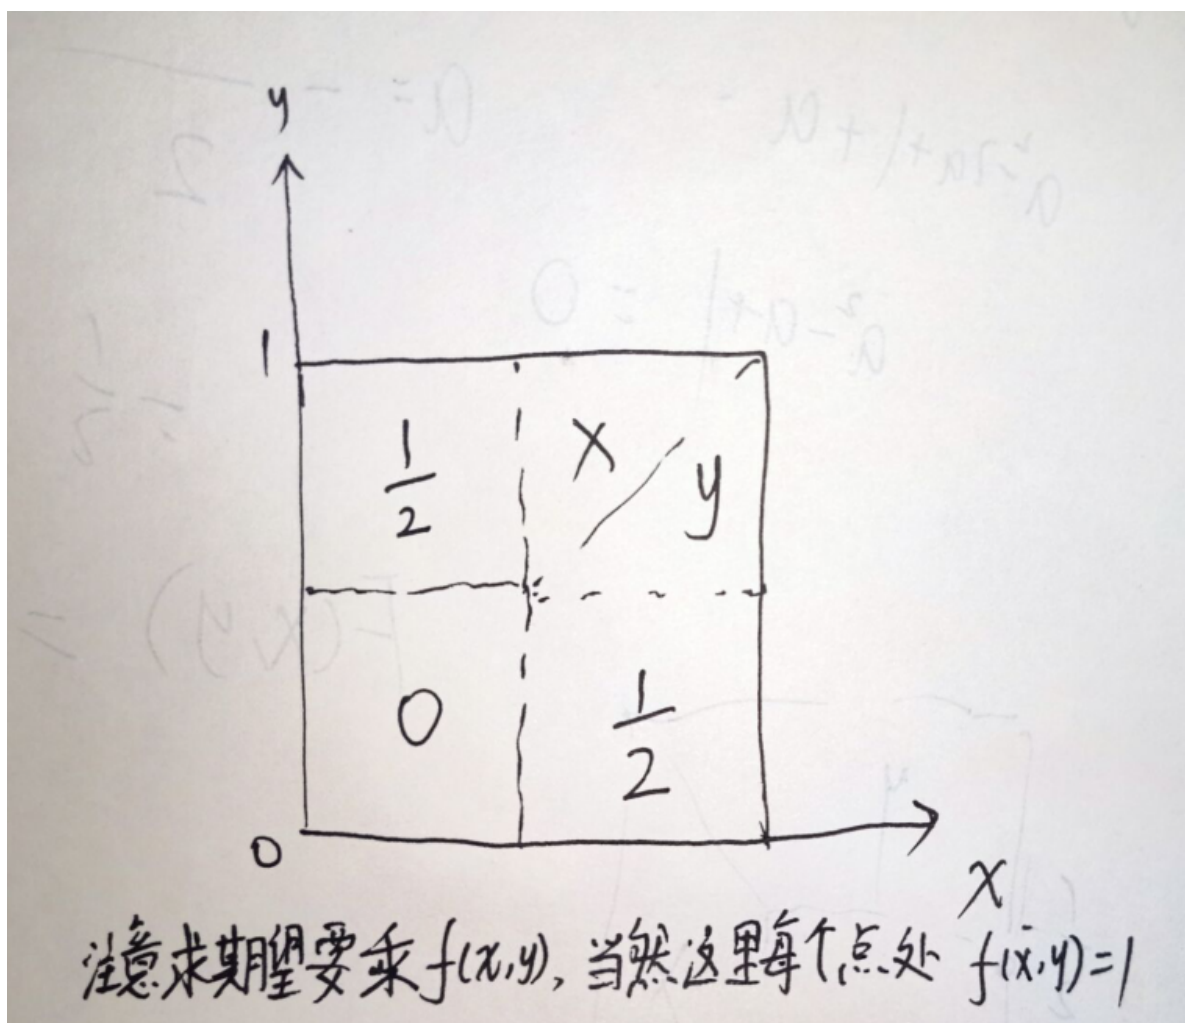 y
1
1/2
x/y
0
1/2
0
x
注意求期望要乘 f(x,y), 当然这里每个点处 f(x,y)=1